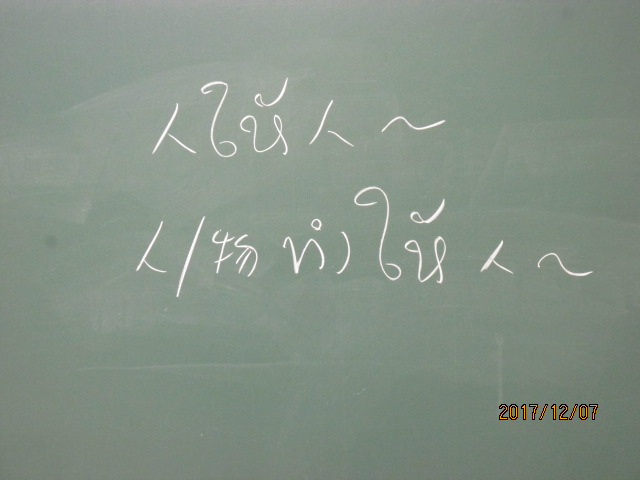 人ให้人～
人/物ทำให้人～
2017/12/07